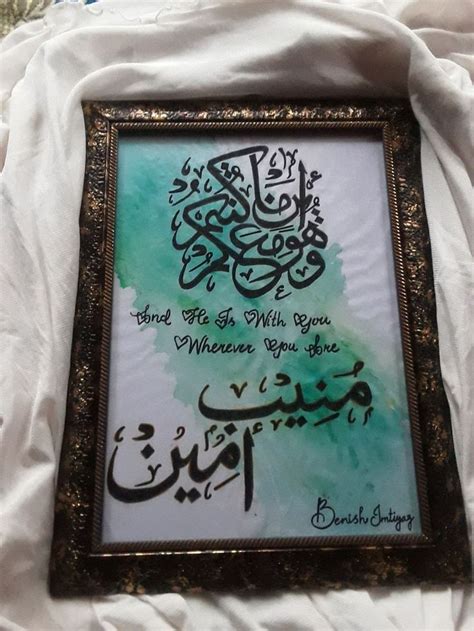 وَهُوَ مَعَكُمْ أَيْنَ مَا كُنْتُمْ
And He Is With You
Wherever You Are
مُنِيب
أَمِين
Benish Imtiyaz